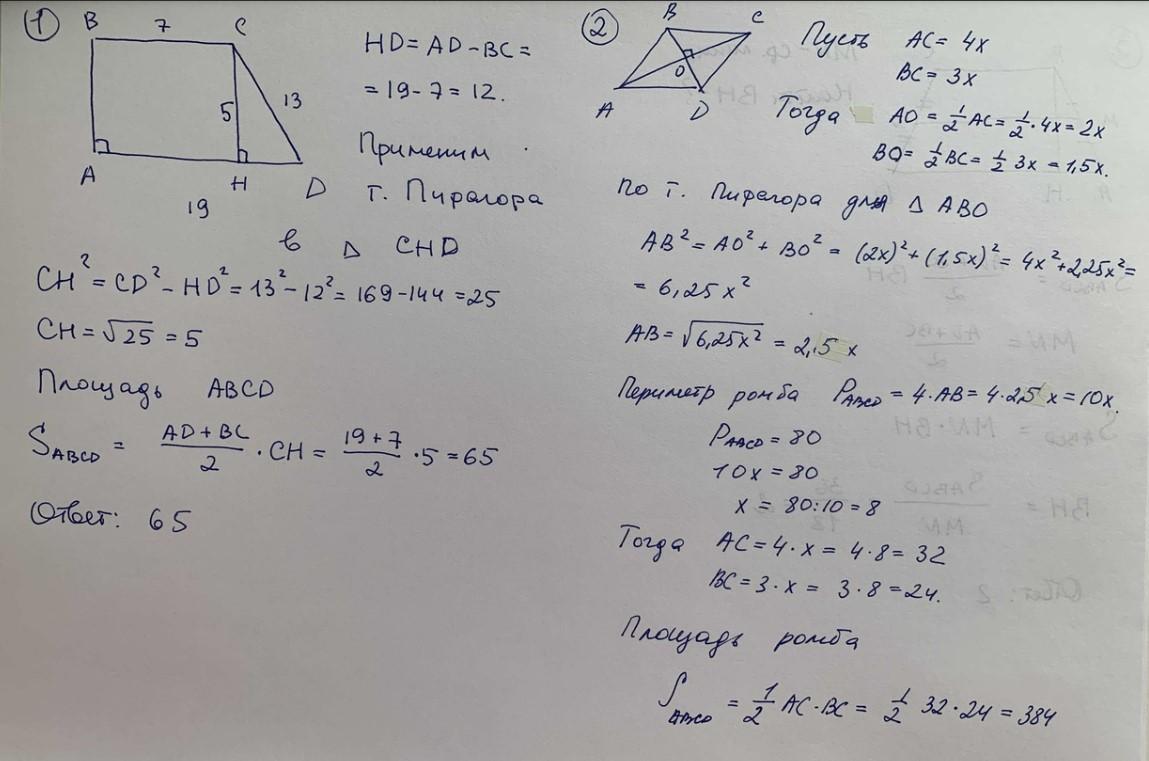 ①
B 7 C
5 13
A H D
19
HD = AD - BC =
= 19 - 7 = 12.
Применим
т. Пифагора
в Δ CHD
CH² = CD² - HD² = 13² - 12² = 169 - 144 = 25
CH = √25 = 5
Площадь ABCD
S_ABCD = (AD + BC)/2 · CH = (19 + 7)/2 · 5 = 65
Ответ: 65
②
B C
O
A D
Пусть AC = 4x
BC = 3x
Тогда AO = 1/2 AC = 1/2 · 4x = 2x
BO = 1/2 BC = 1/2 3x = 1,5x.
По т. Пифагора для Δ ABO
AB² = AO² + BO² = (2x)² + (1,5x)² = 4x² + 2,25x² =
= 6,25x²
AB = √6,25x² = 2,5 x
Периметр ромба P_ABCD = 4 · AB = 4 · 2,5 x = 10x.
P_ABCD = 80
10x = 80
x = 80:10 = 8
Тогда AC = 4 · x = 4 · 8 = 32
BC = 3 · x = 3 · 8 = 24.
Площадь ромба
S_ABCD = 1/2 AC · BC = 1/2 32 · 24 = 384